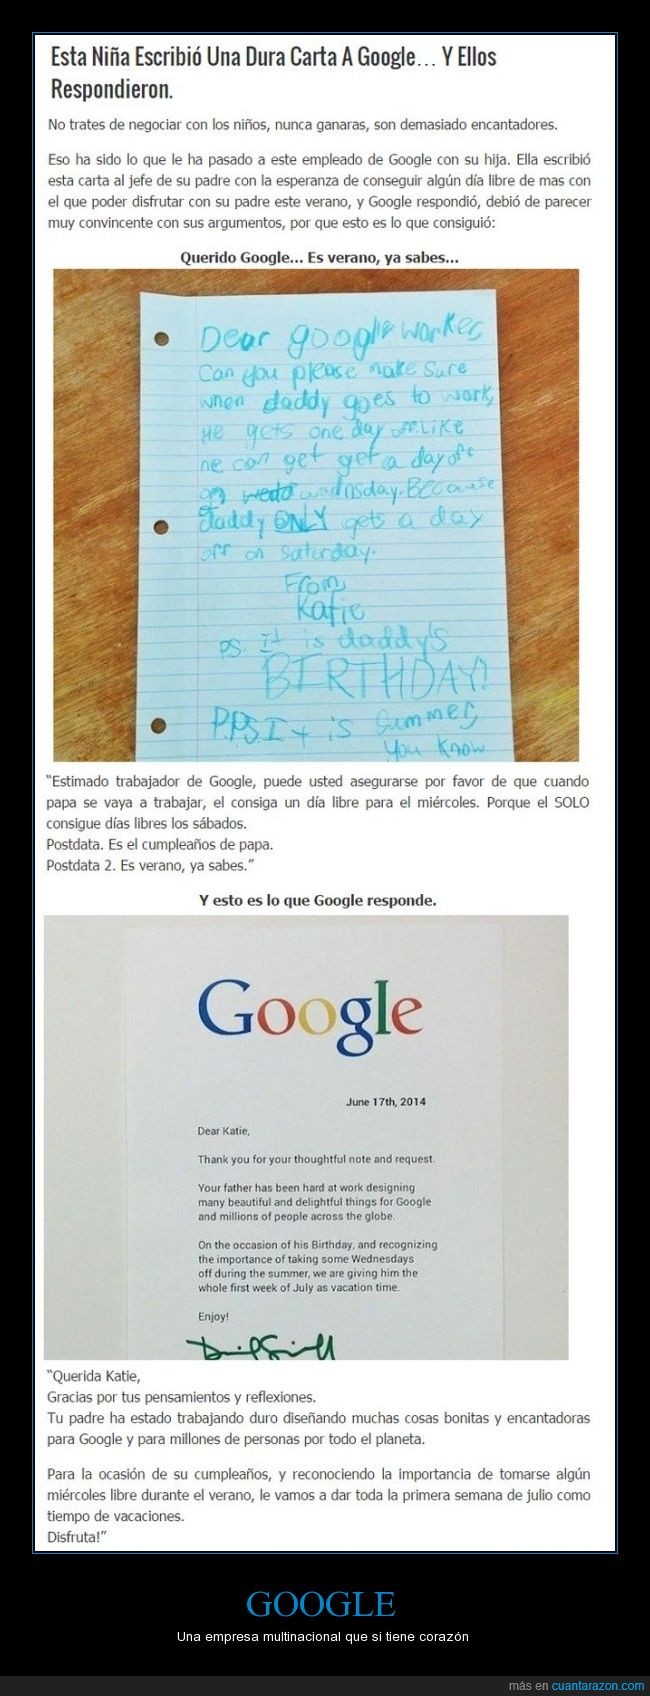 Esta Niña Escribió Una Dura Carta A Google... Y Ellos
Respondieron.
No trates de negociar con los niños, nunca ganaras, son demasiado encantadores.
Eso ha sido lo que le ha pasado a este empleado de Google con su hija. Ella escribió
esta carta al jefe de su padre con la esperanza de conseguir algún día libre de mas con
el que poder disfrutar con su padre este verano, y Google respondió, debió de parecer
muy convincente con sus argumentos, por que esto es lo que consiguió:
Querido Google... Es verano, ya sabes...
Dear google worker,
Can you please make sure
when daddy goes to work,
He gets one day off. Like
he can get get a day off
on wednsday. Because
daddy ONLY gets a day
off on saturday.
From,
Katie
P.S. It is daddy's
BIRTHDAY!
P.P.S. It is summer,
you know
“Estimado trabajador de Google, puede usted asegurarse por favor de que cuando
papa se vaya a trabajar, el consiga un día libre para el miércoles. Porque el SOLO
consigue días libres los sábados.
Postdata. Es el cumpleaños de papa.
Postdata 2. Es verano, ya sabes.”
Y esto es lo que Google responde.
Google
June 17th, 2014
Dear Katie,
Thank you for your thoughtful note and request.
Your father has been hard at work designing
many beautiful and delightful things for Google
and millions of people across the globe.
On the occasion of his Birthday, and recognizing
the importance of taking some Wednesdays
off during the summer, we are giving him the
whole first week of July as vacation time.
Enjoy!
“Querida Katie,
Gracias por tus pensamientos y reflexiones.
Tu padre ha estado trabajando duro diseñando muchas cosas bonitas y encantadoras
para Google y para millones de personas por todo el planeta.
Para la ocasión de su cumpleaños, y reconociendo la importancia de tomarse algún
miércoles libre durante el verano, le vamos a dar toda la primera semana de julio como
tiempo de vacaciones.
Disfruta!”
GOOGLE
Una empresa multinacional que si tiene corazón
más en cuantarazon.com